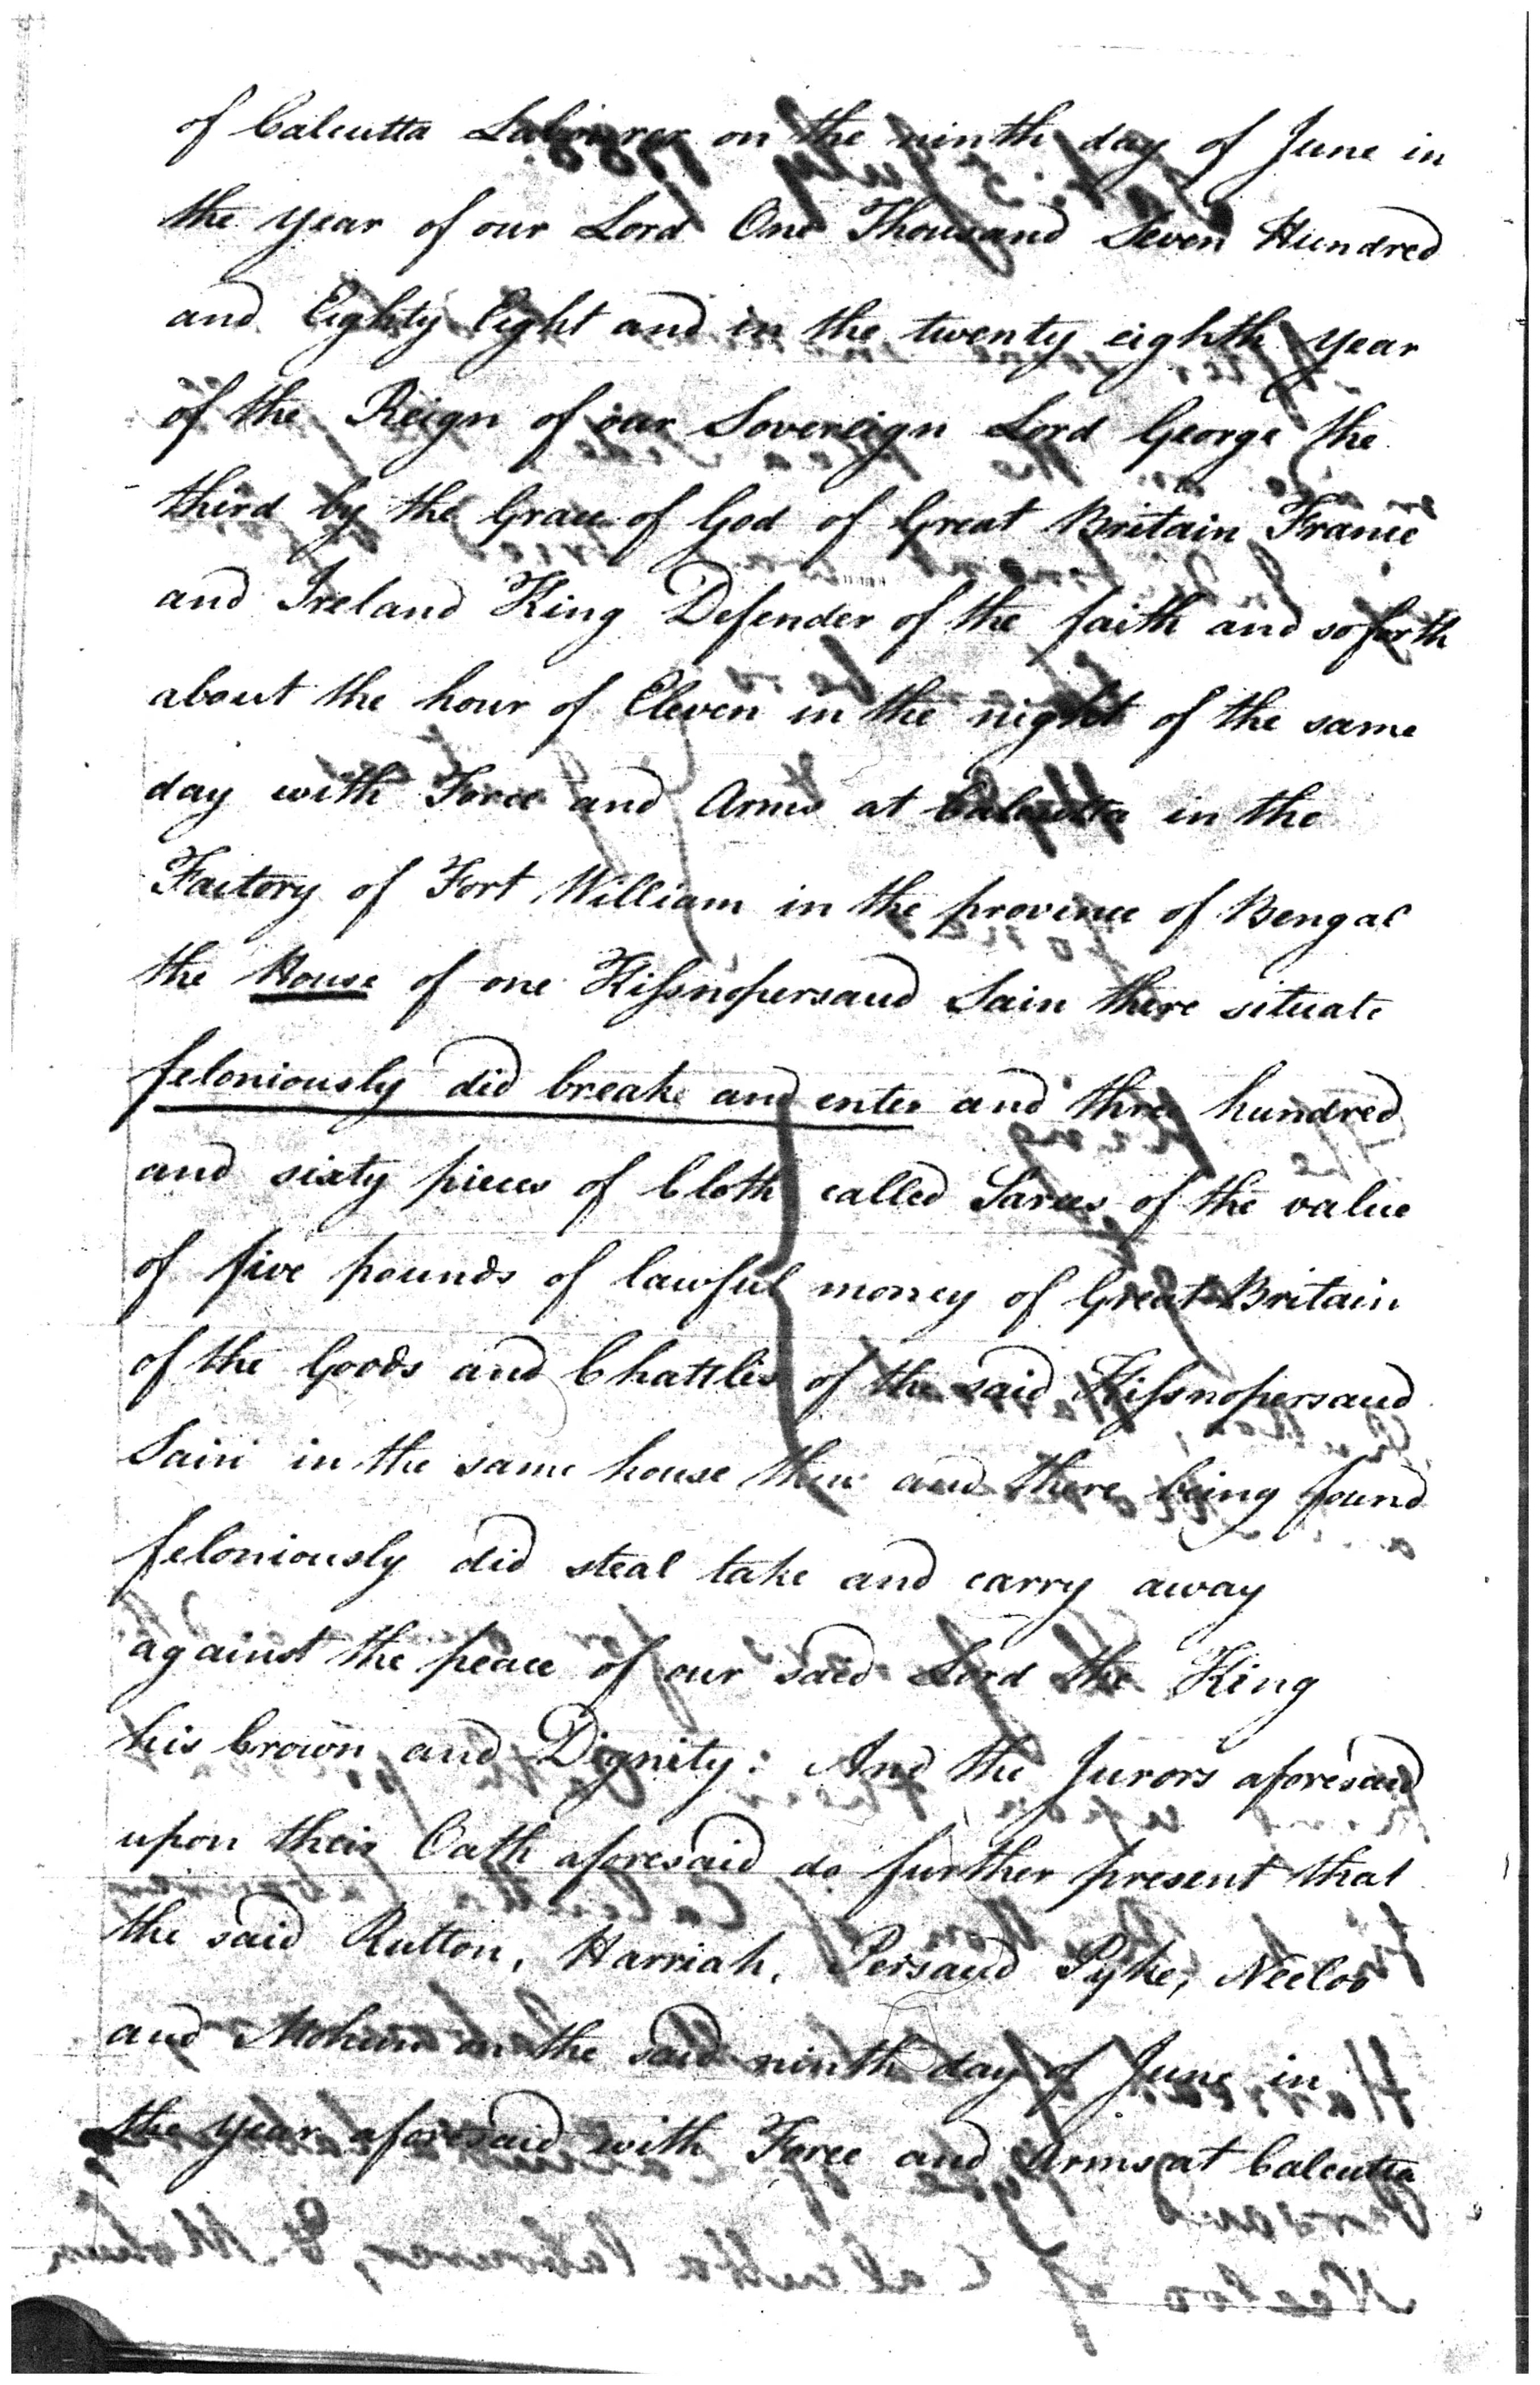 of Calcutta Labourer on the ninth day of June in
the year of our Lord One Thousand Seven Hundred
and Eighty Eight and in the twenty eighth year
of the Reign of our Sovereign Lord George the
third by the Grace of God of Great Britain France
and Ireland King Defender of the faith and so forth
about the hour of Eleven in the night of the same
day with Force and Arms at Calcutta in the
Factory of Fort William in the province of Bengal
the House of one Kissnopersaud Sain there situate
feloniously did break and enter and three hundred
and sixty pieces of Cloth called Sarees of the value
of five pounds of lawful money of Great Britain
of the Goods and Chattles of the said Kissnopersaud
Sain in the same house then and there being found
feloniously did steal take and carry away
against the peace of our said Lord the King
his Crown and Dignity: And the Jurors aforesaid
upon their Oath aforesaid do further present that
the said Rutton, Harriah, Persaud Pyke, Neeloo
and Mohun on the said ninth day of June in
the year aforesaid with Force and Arms at Calcutta